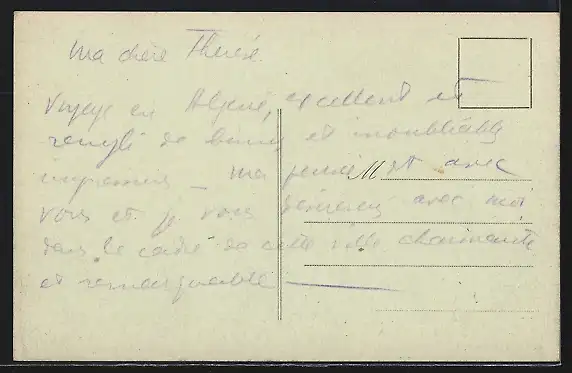 Ma chère Thérèse
Voyage en Algérie, excellent et
rempli de bonnes et inoubliables
impressions _ Ma pensée est avec
M
vous et je vous avec moi
dans le cadre de cette ville charmante
et remarquable